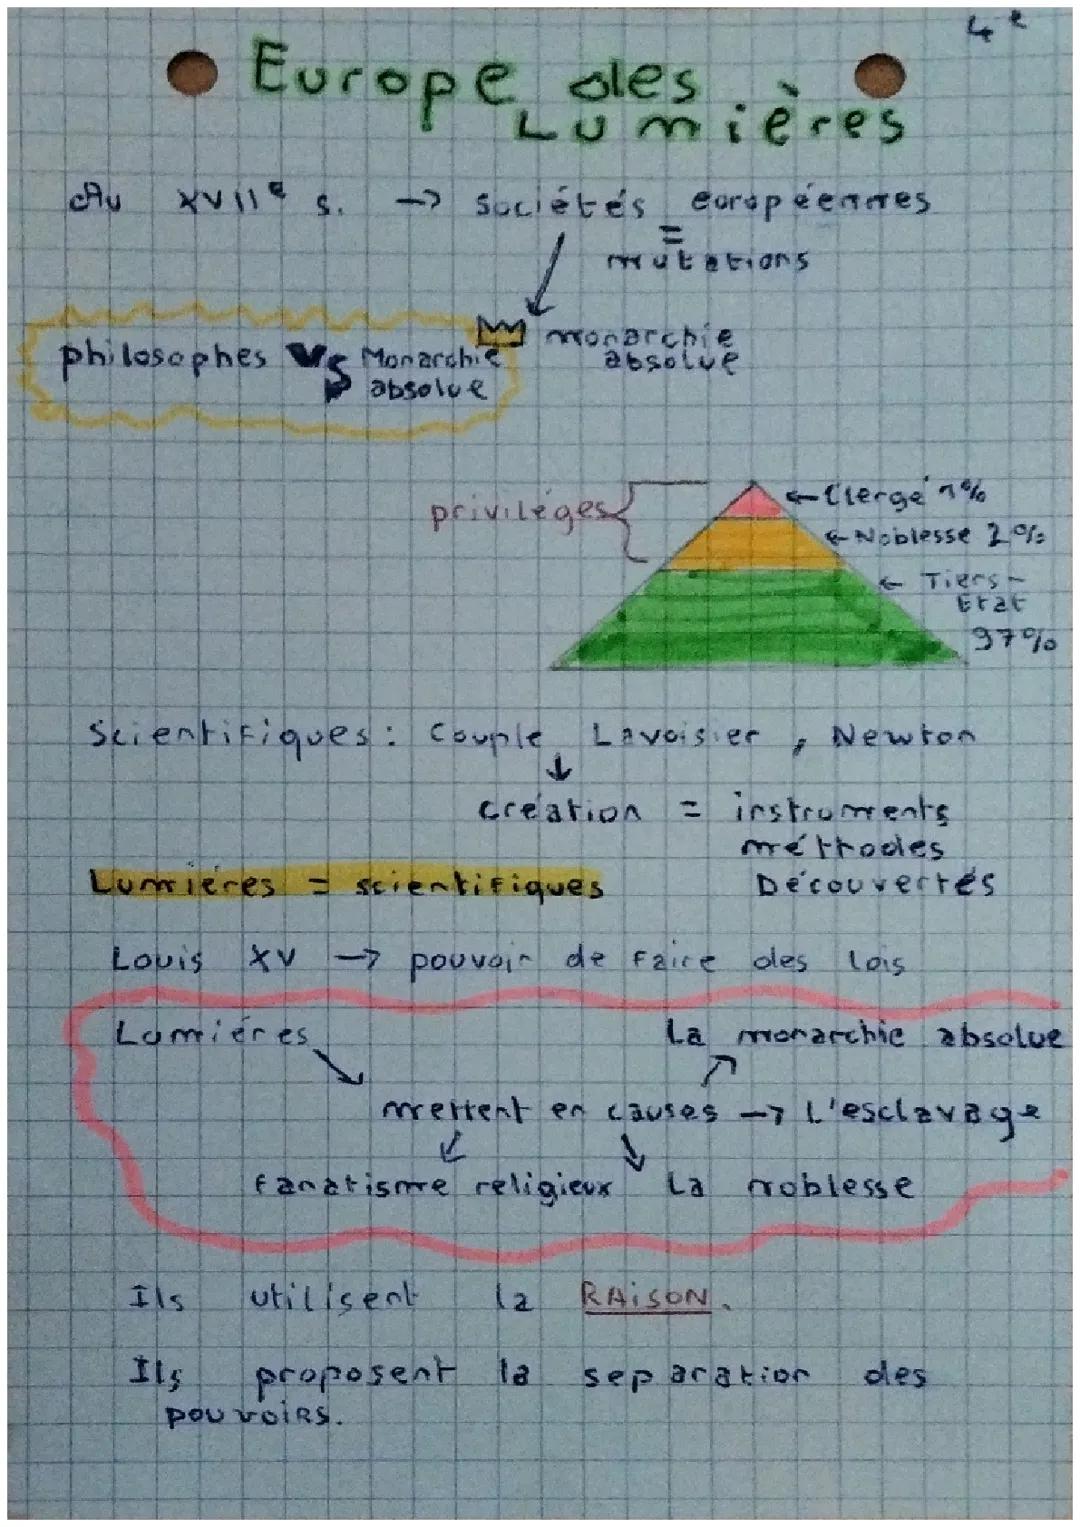 4e
Europe des
Lumières
Au XVIIe s. → sociétés européennes
=
mutations
philosophes VS Monarchie
absolue
monarchie
absolue
privilèges
← Clergé 1%
← Noblesse 2%
← Tiers-
Etat
97%
Scientifiques : Couple Lavoisier, Newton
↓
création = instruments
méthodes
Découvertes
Lumières = scientifiques
Louis XV → pouvoir de faire des lois
Lumières
La monarchie absolue
mettent en causes → L'esclavage
fanatisme religieux
La noblesse
Ils utilisent la RAiSON.
Ils proposent la separation des
pouvoirs.